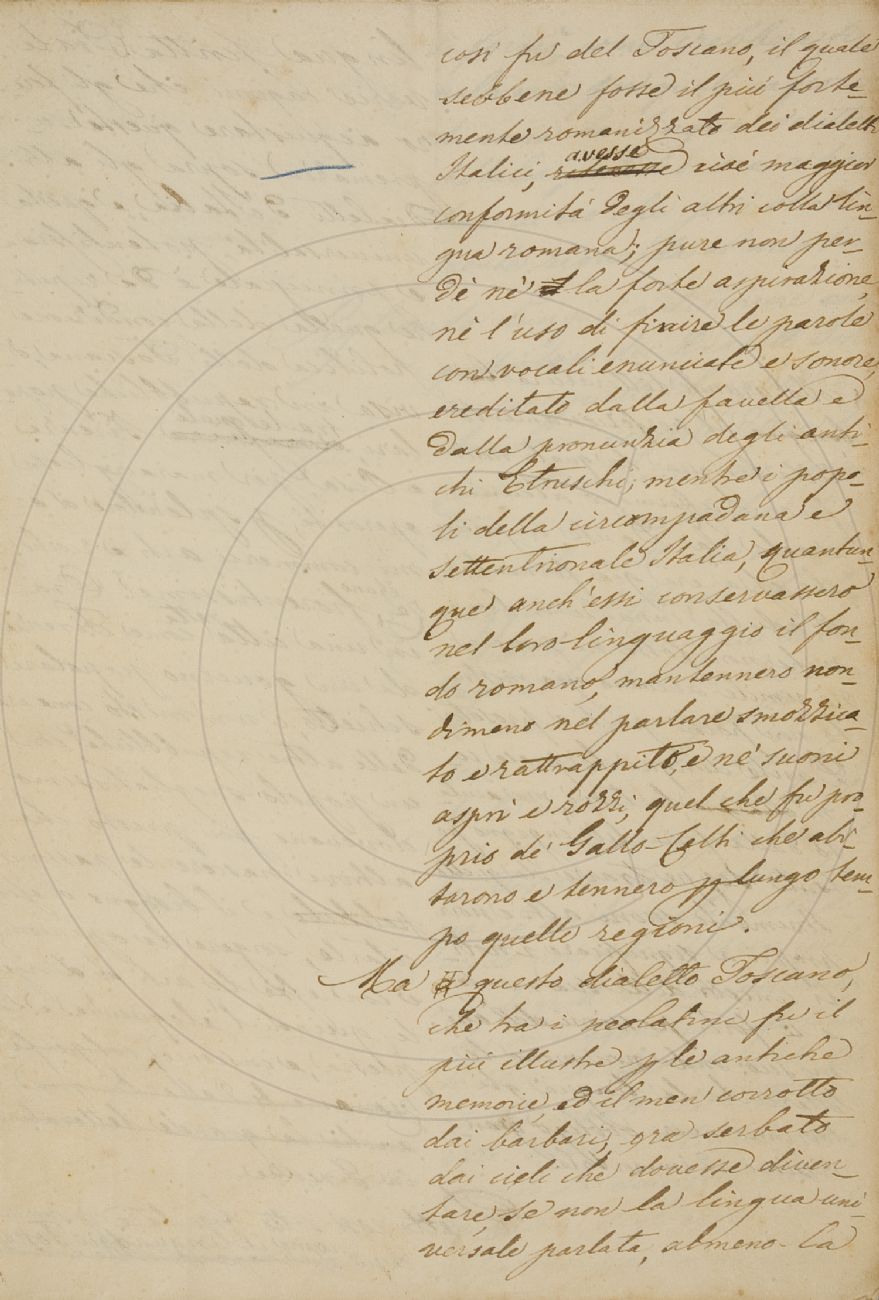 così fu del Toscano, il quale
sebbene fosse il più forte-
mente romanizzato dei dialetti
avesse
Italici, cioè maggior
conformità degli altri colla lin-
gua romana; pure non per-
dè nè la forte aspirazione,
nè l'uso di finire le parole
con vocali enunciate e sonore,
ereditato dalla favella e
dalla pronunzia degli anti-
chi Etruschi; mentre i popo-
li della circompadana e
settentrionale Italia, quantun-
que anch'essi conservassero
nel loro linguaggio il fon-
do romano, mantennero non-
dimeno nel parlare smozzica-
to e rattrappito, e ne' suoni
aspri e rozzi, quel che fu pro-
prio de' Gallo-Celti che abi-
tarono e tennero p lungo tem-
po quelle regioni.
Ma a questo dialetto Toscano,
che tra i neolatini fu il
più illustre p le antiche
memorie, ed il men corrotto
dai barbari, era serbato
dai cieli che dovesse diven-
tare, se non la lingua uni-
versale parlata, almeno la